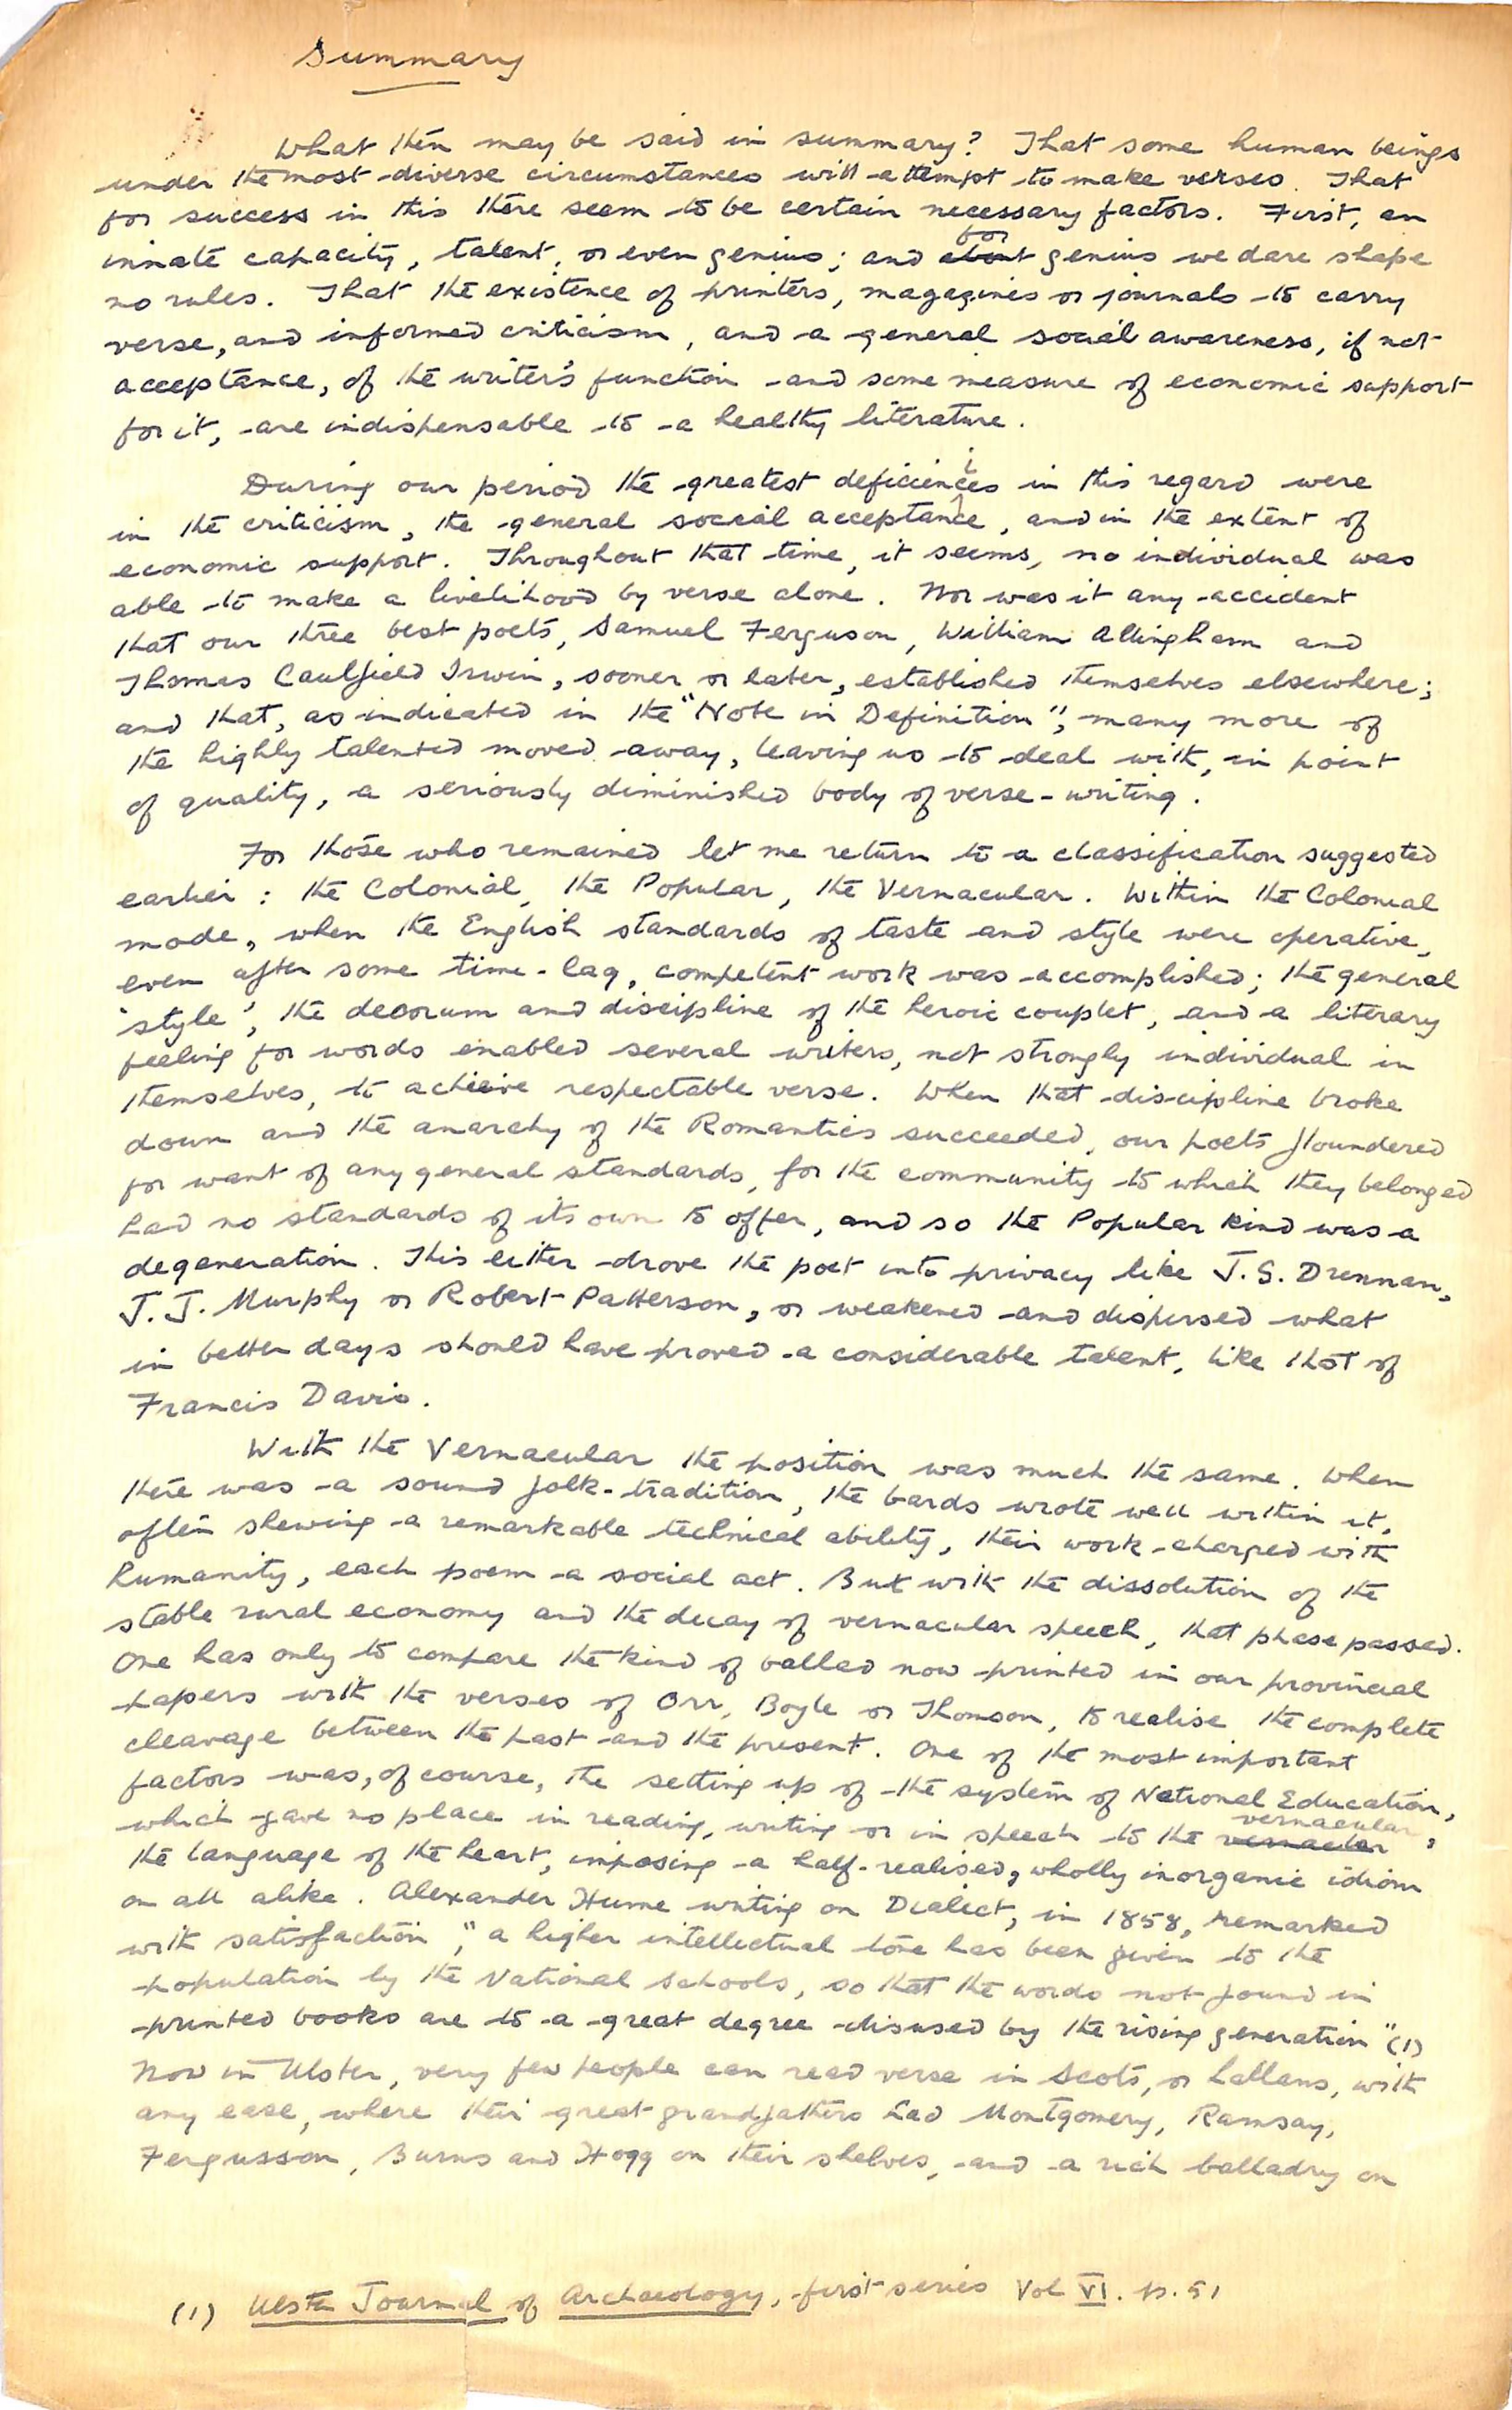 Summary
What then may be said in summary? That some human beings
under the most diverse circumstances will attempt to make verses. That
for success in this there seem to be certain necessary factors. First, an
innate capacity, talent, or even genius; and about for genius we dare shape
no rules. That the existence of printers, magazines or journals to carry
verse, and informed criticism, and a general social awareness, if not
acceptance, of the writer's function and some measure of economic support
for it, are indispensable to a healthy literature.
During our period the greatest deficiencies in this regard were
in the criticism, the general social acceptance, and in the extent of
economic support. Throughout that time, it seems, no individual was
able to make a livelihood by verse alone. Nor was it any accident
that our three best poets, Samuel Ferguson, William Allingham and
Thomas Caulfield Irwin, sooner or later, established themselves elsewhere;
and that, as indicated in the "Note in Definition", many more of
the highly talented moved away, leaving us to deal with, in point
of quality, a seriously diminished body of verse-writing.
For those who remained let me return to a classification suggested
earlier: the Colonial, the Popular, the Vernacular. Within the Colonial
mode, when the English standards of taste and style were operative,
even after some time-lag, competent work was accomplished; the general
'style', the decorum and discipline of the heroic couplet, and a literary
feeling for words enabled several writers, not strongly individual in
themselves, to achieve respectable verse. When that discipline broke
down and the anarchy of the Romantics succeeded, our poets floundered
for want of any general standards, for the community to which they belonged
had no standards of its own to offer, and so the Popular kind was a
degeneration. This either drove the poet into privacy like J. S. Drennan,
J. J. Murphy or Robert Patterson, or weakened and dispersed what
in better days should have proved a considerable talent, like that of
Francis Davis.
With the Vernacular the position was much the same. When
there was a sound folk-tradition, the bards wrote well within it,
often shewing a remarkable technical ability, their work charged with
humanity, each poem a social act. But with the dissolution of the
stable rural economy and the decay of vernacular speech, that phase passed.
One has only to compare the kind of ballad now printed in our provincial
papers with the verses of Orr, Boyle or Thomson, to realise the complete
cleavage between the past and the present. One of the most important
factors was, of course, the setting up of the system of National Education,
which gave no place in reading, writing or in speech to the vernacular,
the language of the heart, imposing a half-realised, wholly inorganic idiom
on all alike. Alexander Hume writing on Dialect, in 1858, remarked
with satisfaction, "a higher intellectual tone has been given to the
population by the National Schools, so that the words not found in
printed books are to a great degree disused by the rising generation" (1)
Now in Ulster, very few people can read verse in Scots, or Lallans, with
any ease, where their great grandfathers had Montgomery, Ramsay,
Fergusson, Burns and Hogg on their shelves, and a rich balladry on
(1) Ulster Journal of Archaeology, first series Vol VI. p. 51